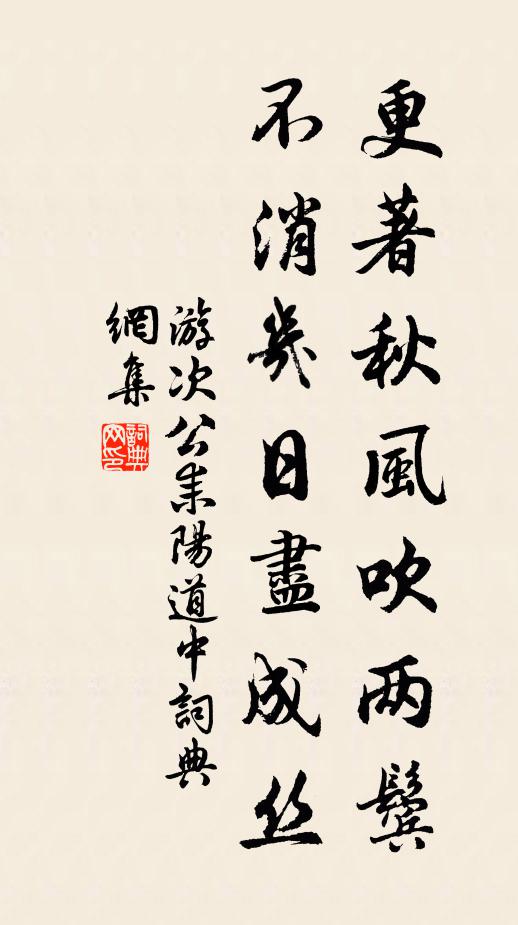 更著秋風吹两鬢
不消幾日盡成丝
游次公耒陽道中詞典
網集
詞典网印